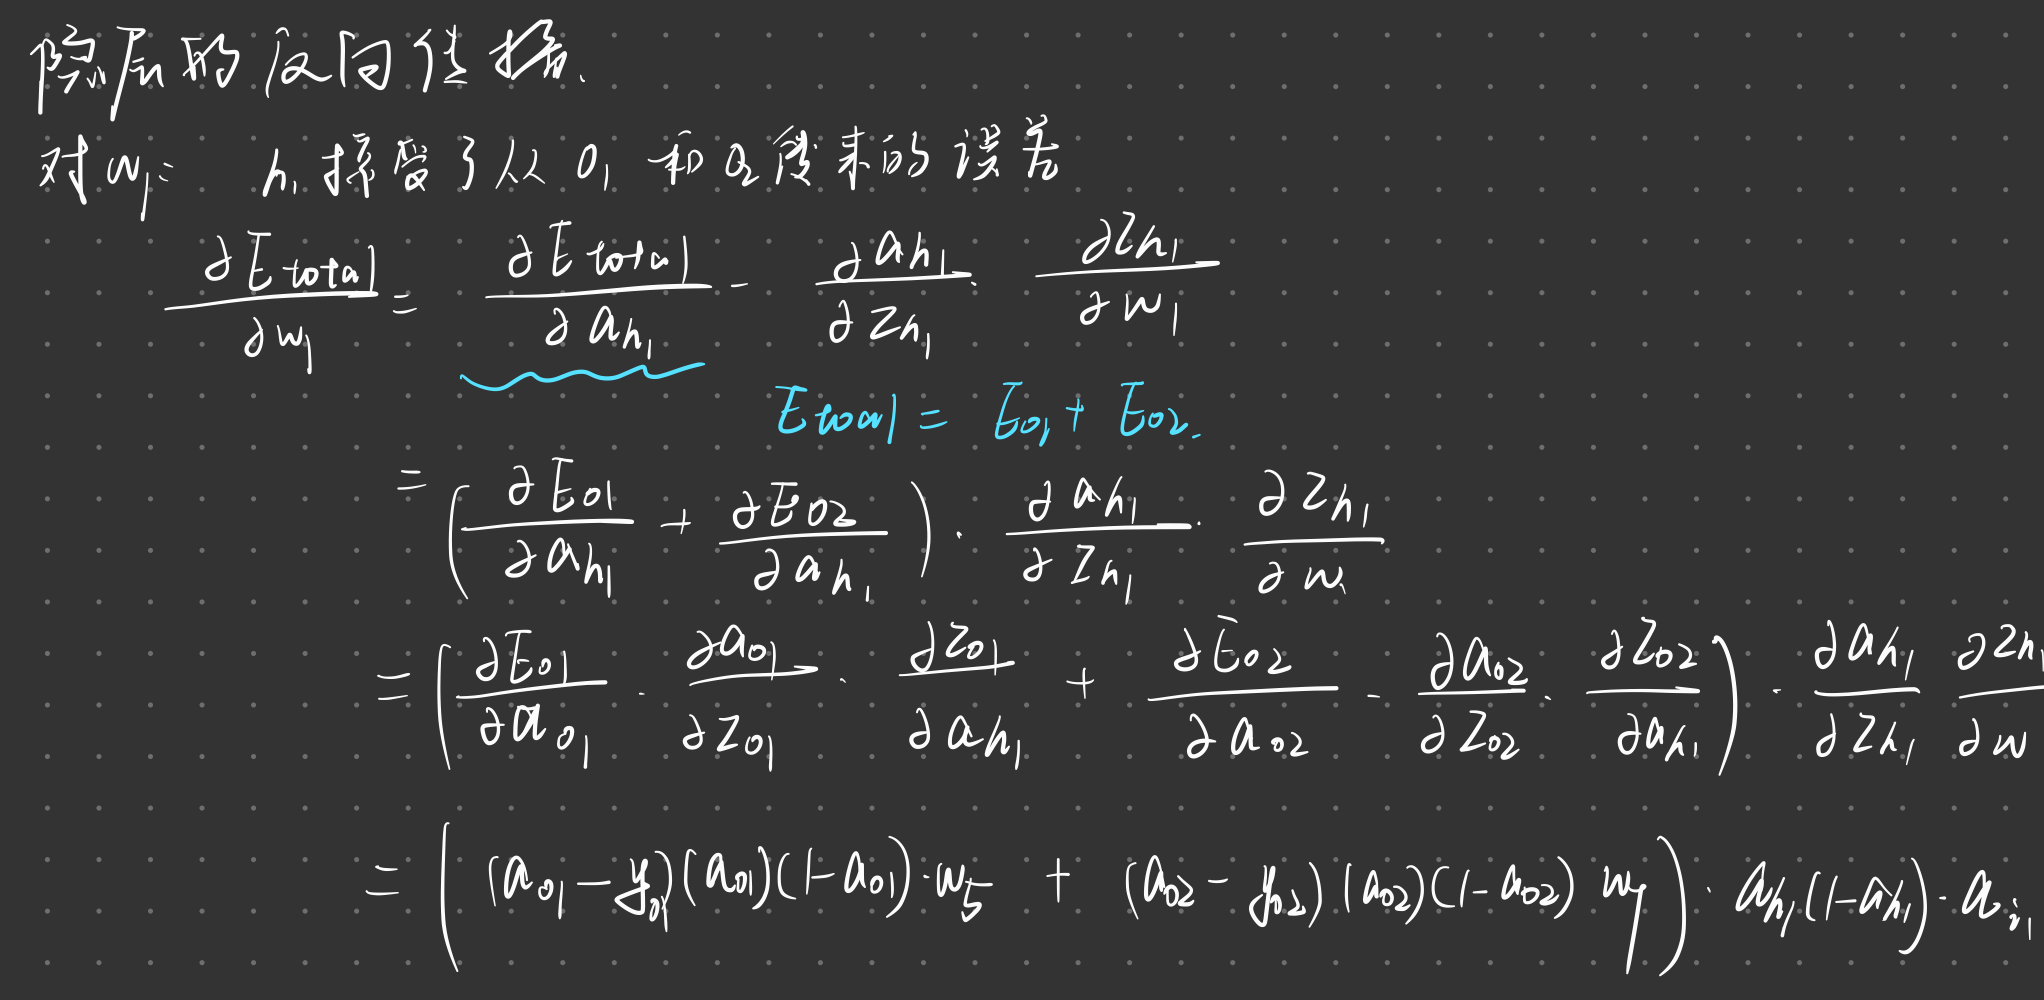 隐层的反向传播.
对 w₁: h₁ 接受了从 o₁ 和 o₂ 传来的误差
∂E_total/∂w₁ = ∂E_total/∂a_h₁ · ∂a_h₁/∂z_h₁ · ∂z_h₁/∂w₁
E_total = E_o₁ + E_o₂.
= (∂E_o₁/∂a_h₁ + ∂E_o₂/∂a_h₁) · ∂a_h₁/∂z_h₁ · ∂z_h₁/∂w₁
= (∂E_o₁/∂a_o₁ · ∂a_o₁/∂z_o₁ · ∂z_o₁/∂a_h₁ + ∂E_o₂/∂a_o₂ · ∂a_o₂/∂z_o₂ · ∂z_o₂/∂a_h₁) · ∂a_h₁/∂z_h₁ ∂z_h₁/∂w
= ((a_o₁ − y_o₁)(a_o₁)(1 − a_o₁) · w₅ + (a_o₂ − y_o₂)(a_o₂)(1 − a_o₂) w₇) · a_h₁(1 − a_h₁) · a_i₁